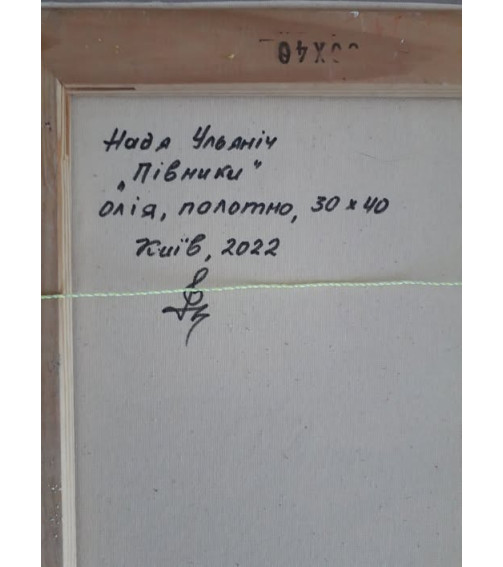 Надя Ульяніч
„Півники"
олія, полотно, 30 х 40
Київ, 2022